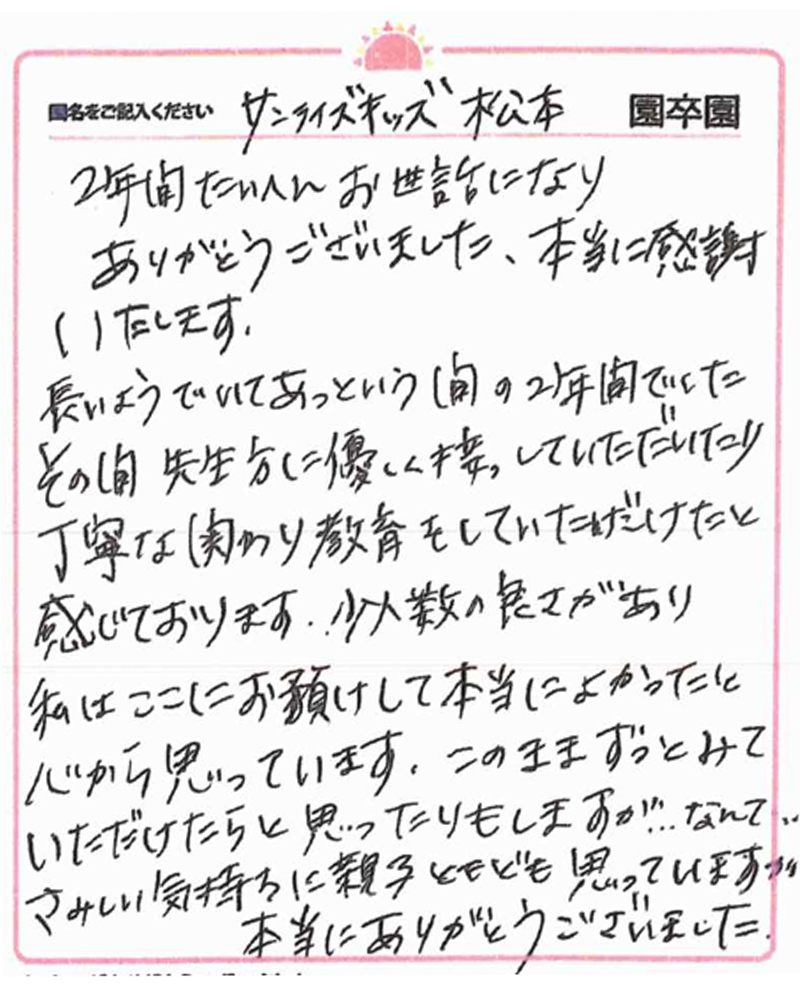 園名をご記入ください サンライズキッズ 松本 園卒園
2年間たいへん お世話になり
ありがとうございました、本当に感謝
いたします.
長いようでいてあっという間の2年間でした
その間 先生方に優しく接していただいたり
丁寧な関わり教育をしていただけたと
感じております. 少人数の良さがあり
私はここにお願いして本当によかったと
心から思っています. このままずっとみて
いただけたらと思ったりもしますが...なんて..
さみしい気持ちに親子ともども思っていますが
本当にありがとうございました.